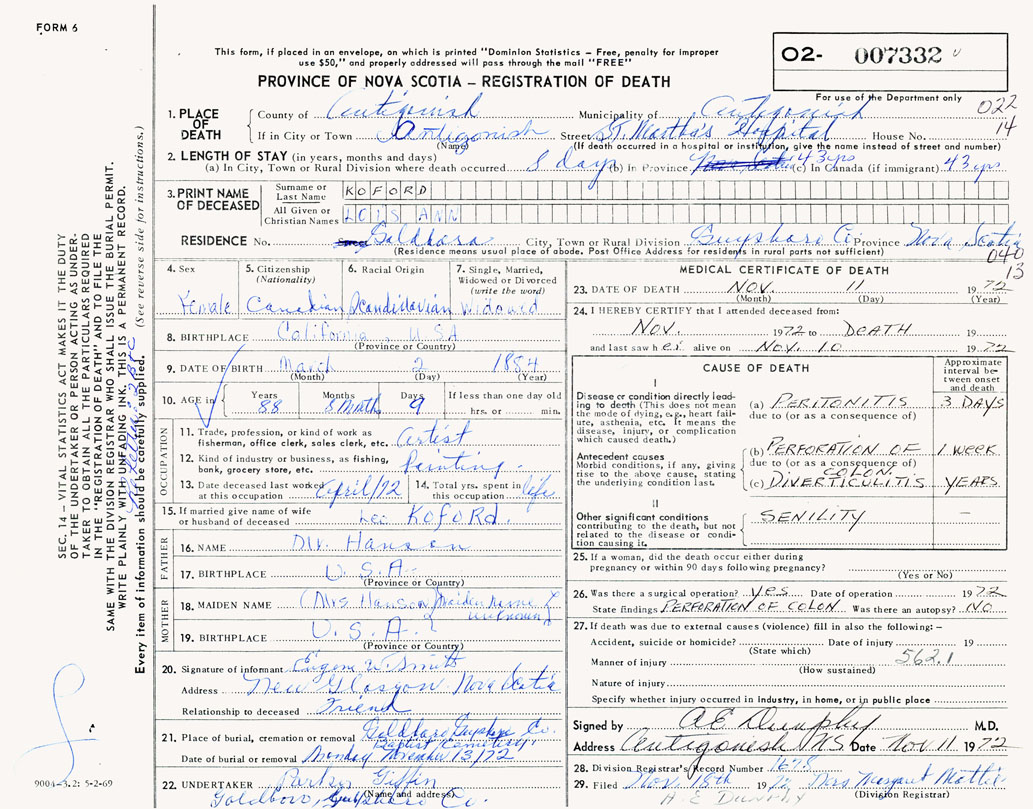 FORM 6
This form, if placed in an envelope, on which is printed "Dominion Statistics – Free, penalty for improper
use $50," and properly addressed will pass through the mail "FREE"
PROVINCE OF NOVA SCOTIA – REGISTRATION OF DEATH
O2- 007332
For use of the Department only
022
14
1. PLACE OF DEATH
County of Antigonish Municipality of Antigonish
If in City or Town Antigonish Street St. Martha's Hospital House No.
(Name) (If death occurred in a hospital or institution, give the name instead of street and number)
2. LENGTH OF STAY (in years, months and days)
(a) In City, Town or Rural Division where death occurred 8 days (b) In Province 43 yrs (c) In Canada (if immigrant) 43 yrs
3. PRINT NAME OF DECEASED
Surname or Last Name KOFORD
All Given or Christian Names LOIS ANN
RESIDENCE No. Street Goldboro City, Town or Rural Division Guysboro Co Province Nova Scotia
(Residence means usual place of abode. Post Office Address for residents in rural parts not sufficient)
040
13
4. Sex Female
5. Citizenship (Nationality) Canadian
6. Racial Origin Scandinavian
7. Single, Married, Widowed or Divorced (write the word) Widowed
8. BIRTHPLACE California, USA
(Province or Country)
9. DATE OF BIRTH March 2 1884
(Month) (Day) (Year)
10. AGE in Years 88 Months 8 Months Days 9 If less than one day old hrs. or min.
OCCUPATION
11. Trade, profession, or kind of work as fisherman, office clerk, sales clerk, etc. Artist
12. Kind of industry or business, as fishing, bank, grocery store, etc. Painting
13. Date deceased last worked at this occupation April/72
14. Total yrs. spent in this occupation life
15. If married give name of wife or husband of deceased Leo Koford.
FATHER
16. NAME Hanson
17. BIRTHPLACE U.S.A.
(Province or Country)
MOTHER
18. MAIDEN NAME (Mrs Hanson) Maiden name unknown
19. BIRTHPLACE U.S.A.
(Province or Country)
20. Signature of informant Eugene W. Smith
Address New Glasgow Nova Scotia
Relationship to deceased Friend
21. Place of burial, cremation or removal Goldboro Guysboro Co.
Baptist Cemetery
Date of burial or removal Monday November 13/72
22. UNDERTAKER Parker Giffin
(Name and address)
Goldboro, Guysboro Co.
MEDICAL CERTIFICATE OF DEATH
23. DATE OF DEATH NOV. 11 1972
(Month) (Day) (Year)
24. I HEREBY CERTIFY that I attended deceased from:
NOV. 1972 to DEATH 19
and last saw her alive on NOV. 10 1972
CAUSE OF DEATH
Approximate interval between onset and death
I
Disease or condition directly leading to death (This does not mean the mode of dying, e.g., heart failure, asthenia, etc. It means the disease, injury, or complication which caused death.)
(a) PERITONITIS 3 DAYS
due to (or as a consequence of)
Antecedent causes
Morbid conditions, if any, giving rise to the above cause, stating the underlying condition last.
(b) PERFORATION OF COLON 1 WEEK
due to (or as a consequence of)
(c) DIVERTICULITIS YEARS
II
Other significant conditions contributing to the death, but not related to the disease or condition causing it.
SENILITY –
25. If a woman, did the death occur either during pregnancy or within 90 days following pregnancy?
(Yes or No)
26. Was there a surgical operation? Yes Date of operation 1972
State findings PERFORATION OF COLON Was there an autopsy? NO
27. If death was due to external causes (violence) fill in also the following: –
Accident, suicide or homicide? Date of injury 19
(State which)
Manner of injury 562.1
(How sustained)
Nature of injury
Specify whether injury occurred in industry, in home, or in public place
Signed by A E Dunphy M.D.
Address Antigonish NS Date Nov 11 1972
28. Division Registrar's Record Number 1678
29. Filed Nov. 18th 1972 Mrs Margaret
(Division Registrar)
A. E. DUNPHY
SEC. 14 – VITAL STATISTICS ACT MAKES IT THE DUTY
OF THE UNDERTAKER OR PERSON ACTING AS UNDER-
TAKER TO OBTAIN ALL THE PARTICULARS REQUIRED
IN THE "REGISTRATION OF DEATH" AND TO FILE THE
SAME WITH THE DIVISION REGISTRAR WHO SHALL ISSUE THE BURIAL PERMIT.
WRITE PLAINLY WITH UNFADING INK. THIS IS A PERMANENT RECORD.
Every item of information should be carefully supplied. (See reverse side for instructions.)
9004-3.2: 5-2-69